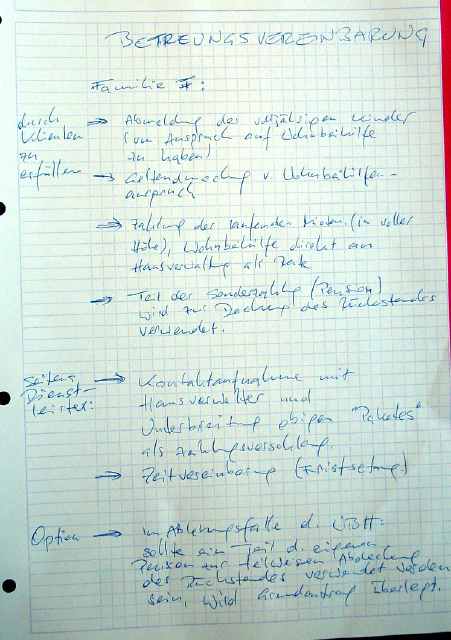 BETREUUNGSVEREINBARUNG
Familie
durch
Klienten
zu
erfüllen
⇒ Abmeldung der volljährigen Kinder
(um Anspruch auf Wohnbeihilfe
zu haben)
→ Geltendmachung v. Wohnbeihilfen-
anspruch
⇒ Zahlung der laufenden Mieten (in voller
Höhe), Wohnbeihilfe direkt an
Hausverwaltung als Rate
→ Teil der Sonderzahlung (Pension)
wird zur Deckung des Rückstandes
verwendet.
seitens
Dienst-
leister:
⇒ Kontaktaufnahme mit
Hausverwalter und
Unterbreitung obigen "Paketes"
als Zahlungsvorschlag.
⇒ Zeitvereinbarung (Fristsetzung)
Option ⇒ im Ablehnungsfalle d. WBH:
sollte ein Teil d. eigenen
Pension zur teilweisen Abdeckung
des Rückstandes verwendet worden
sein, wird überlegt.